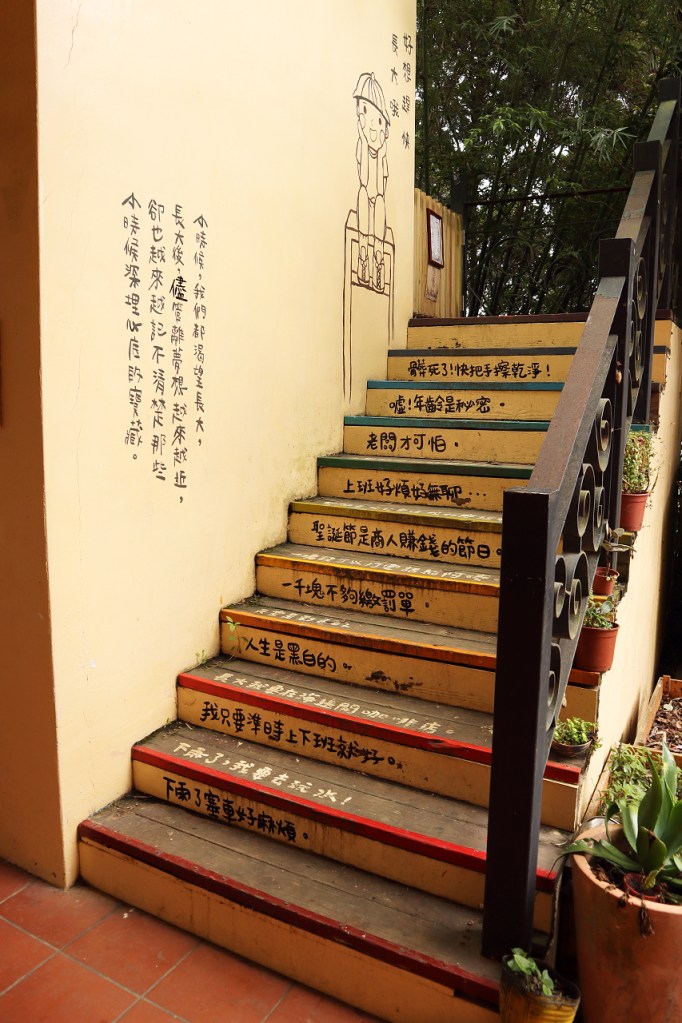 好想
長大
小時候,我們都渴望長大,
長大後,儘管離夢想越來越近,
卻也越來越記不清楚那些
小時候深埋心底的寶藏。
髒死了!快把手擦乾淨!
噓!年齡是祕密。
老闆才可怕。
上班好煩好無聊…
聖誕節是商人賺錢的節日。
一千塊不夠繳罰單。
人生是黑白的。
長大就要在海邊開咖啡店。
我只要準時上下班就好。
下雨了,我要去玩水!
下雨了塞車好麻煩。